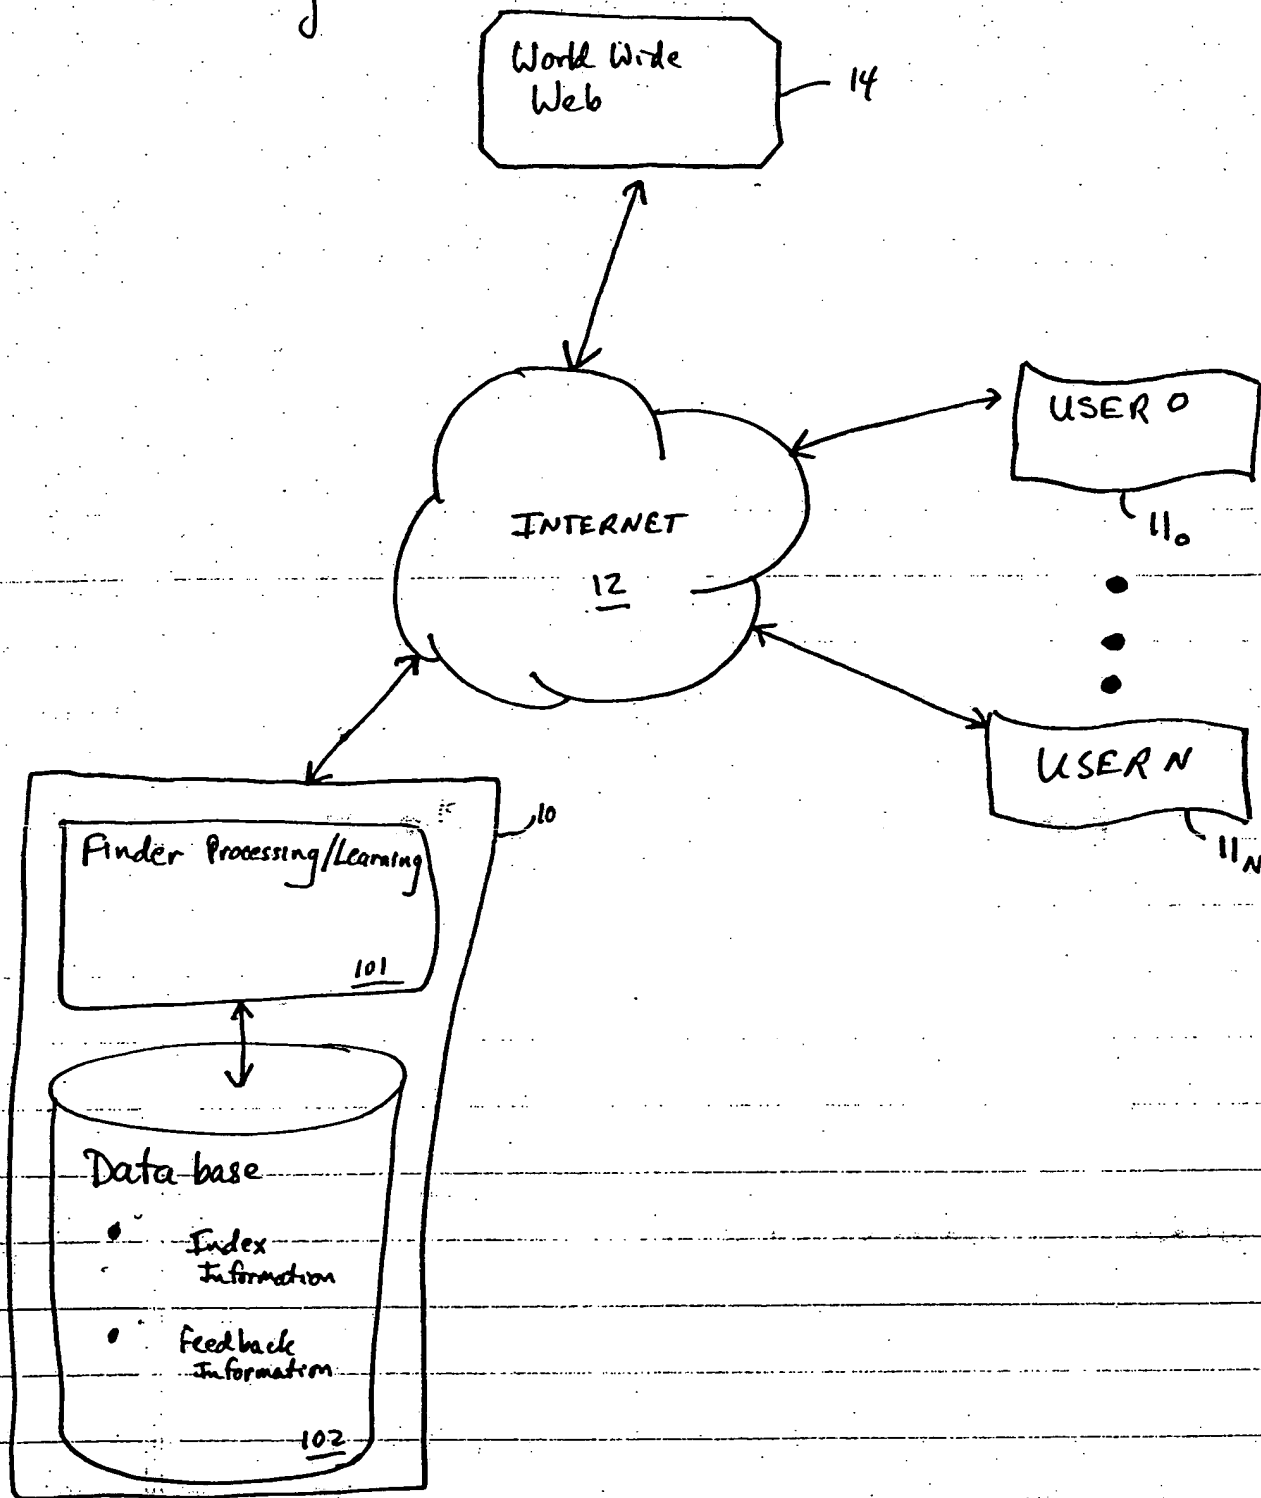 World Wide
Web
14
USER 0
11₀
INTERNET
12
USER N
11N
10
Finder Processing/Learning
101
Data base
• Index
Information
• Feedback
Information
102